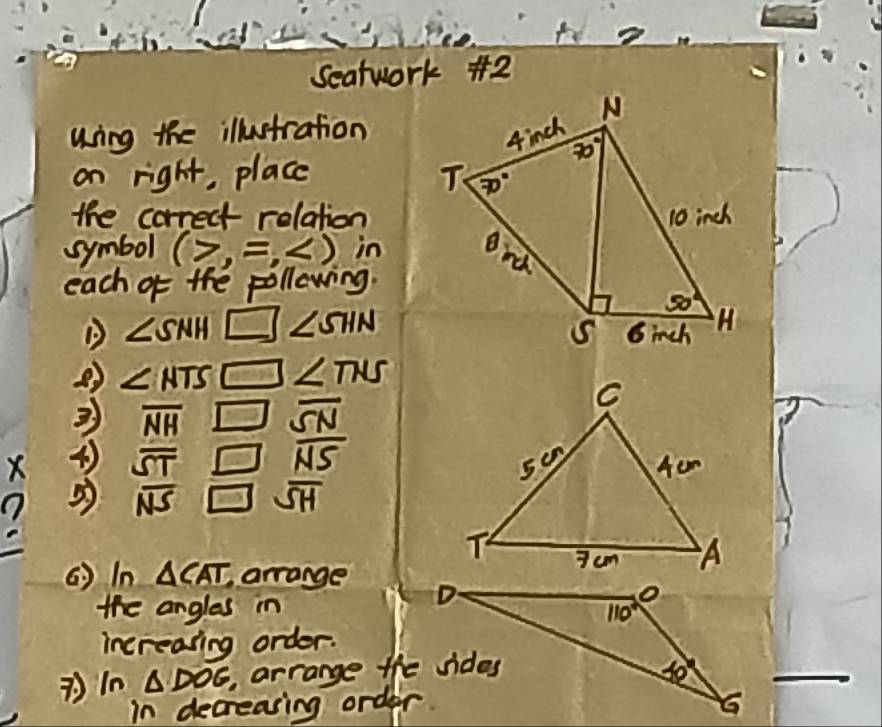 Seatwork #2
Using the illustration
on right, place
the correct relation
symbol (>, =, <) in
each of the following.
1.) ∠SNH □ ∠SHN
2.) ∠NTS □ ∠TNS
3.) NH □ SN
4.) ST □ NS
5.) NS □ SH
6.) In △CAT, arrange
the angles in
increasing order.
7.) In △DOG, arrange the sides
in decreasing order.
N
4 inch
70°
T
70°
10 inch
8 inch
50°
S
6 inch
H
C
5 cm
4 cm
T
7 cm
A
D
O
110°
40°
G
x
?